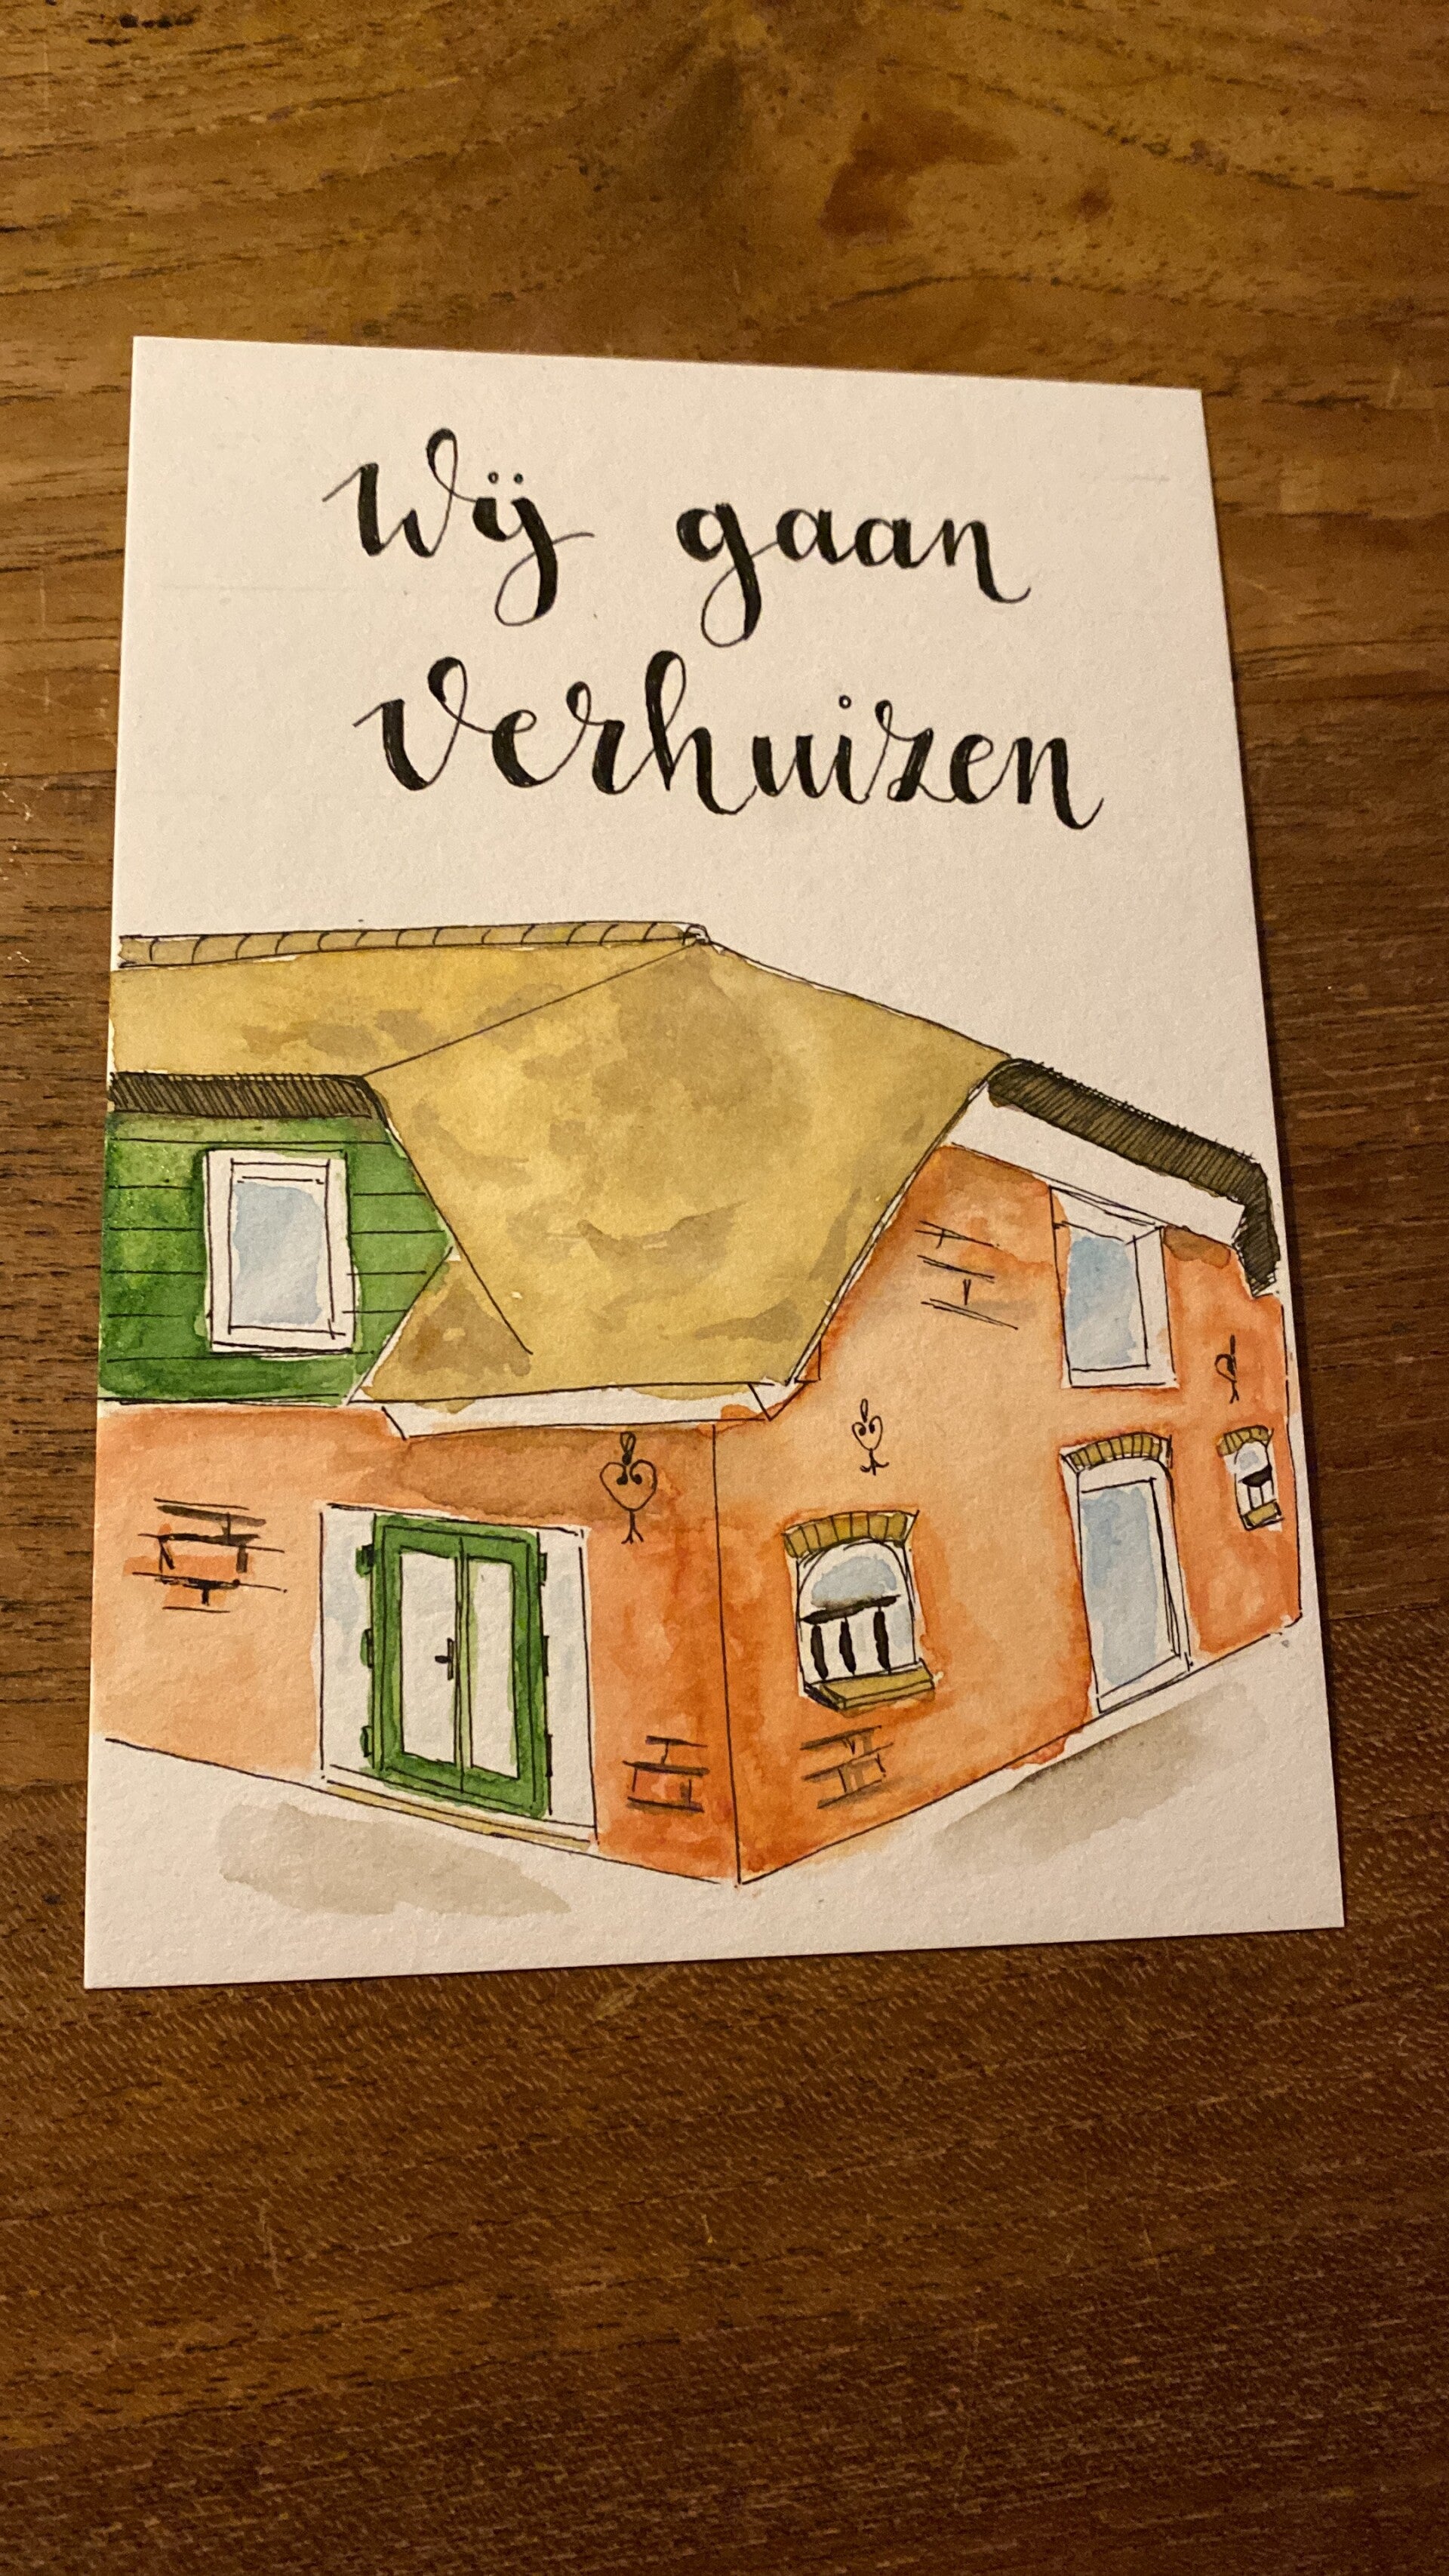 Wij gaan
verhuizen